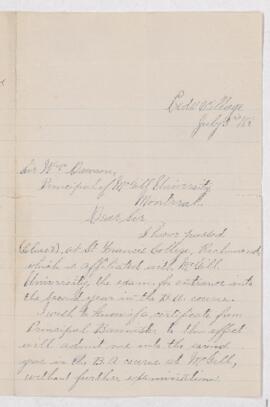 Village
July 3rd
Sir Wm Dawson,
Principal of McGill University
Montreal.
Dear Sir
I have passed
(Class 2), at St Francis College, Richmond,
which is affiliated with McGill
University, the exam. for entrance into
the second year in the B.A. course.
I wish to know if a certificate from
Principal Bannister to this effect
will admit me into the second
year in the B.A. course at McGill,
without further examination.